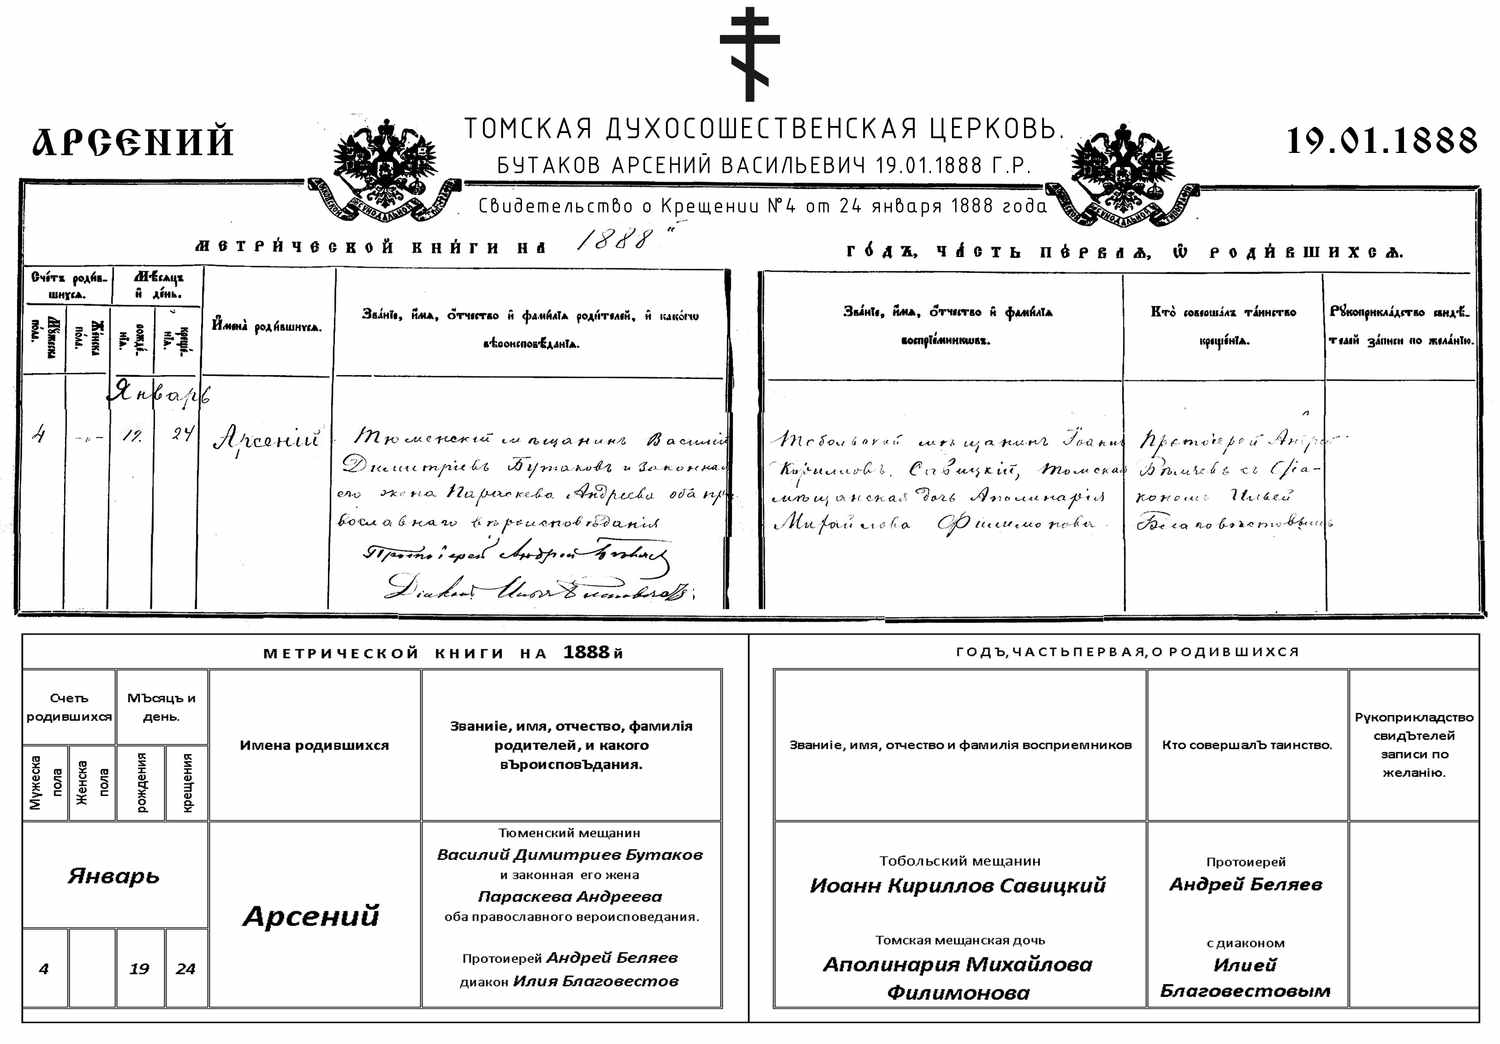 АРСЕНИЙ
ТОМСКАЯ ДУХОСОШЕСТВЕНСКАЯ ЦЕРКОВЬ.
БУТАКОВ АРСЕНИЙ ВАСИЛЬЕВИЧ 19.01.1888 Г.Р.
19.01.1888
Свидетельство о Крещении №4 от 24 января 1888 года
МЕТРИЧЕСКОЙ КНИГИ НА 1888й
ГОДЪ, ЧАСТЬ ПЕРВАЯ, Ѡ РОДИВШИХСЯ.
Счетъ родив-
шихся.
Мѣсяцъ
и день.
Мужеска
пола.
Женска
пола.
рожде-
нія.
креще-
нія.
Имена родившихся.
Званіе, имя, отчество и фамилія родителей, и какого
вѣроисповѣданія.
Званіе, имя, отчество и фамилія
воспріемниковъ.
Кто совершалъ таинство
крещенія.
Рукоприкладство свидѣ-
телей записи по желанію.
Январь
4 -„- 19. 24 Арсеній
Тюменскій мѣщанинъ Василій
Димитріевъ Бутаковъ и законная
его жена Параскева Андреева оба пра
вославнаго вѣроисповѣданія
Протоіерей Андрей Бѣляевъ
Діаконъ Илія Благовѣстовъ
Тобольский мѣщанинъ Іоаннъ
Кирилловъ Савицкій, томская
мѣщанская дочь Аполинарія
Михайлова Филимонова
Протоіерей Андрей
Бѣляевъ съ Діа-
кономъ Ильей
Благовѣстовымъ
МЕТРИЧЕСКОЙ КНИГИ НА 1888й
ГОДЪ, ЧАСТЬ ПЕРВАЯ, О РОДИВШИХСЯ
Счетъ
родившихся
МЪсяцъ и
день.
Мужеска
пола
Женска
пола
рождения
крещения
Имена родившихся
Званиіе, имя, отчество, фамилія
родителей, и какого
въроисповЪдания.
Званиіе, имя, отчество и фамилія восприемников
Кто совершалЪ таинство.
Рукоприкладство
свидЪтелей
записи по
желанію.
Январь
4
19
24
Арсений
Тюменский мещанин
Василий Димитриев Бутаков
и законная его жена
Параскева Андреева
оба православного вероисповедания.
Протоиерей Андрей Беляев
диакон Илия Благовестов
Тобольский мещанин
Иоанн Кириллов Савицкий
Томская мещанская дочь
Аполинария Михайлова
Филимонова
Протоиерей
Андрей Беляев
с диаконом
Илией
Благовестовым